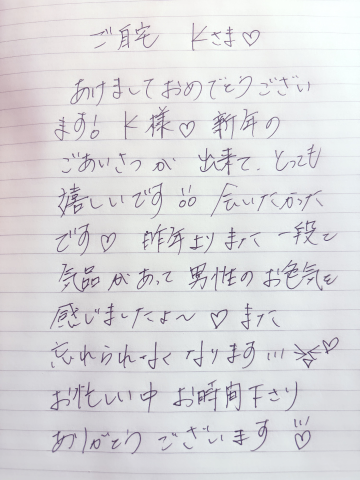 ご自宅 Kさま♡
あけましておめでとうござい
ます! K様♡ 新年の
ごあいさつが 出来て、とっても
嬉しいです!! 会いたかった
です♡ 昨年よりまた一段と
気品があって男性のお色気を
感じましたよ〜♡ また
忘れられなくなります...♡
お忙しい中 お時間下さり
ありがとうございます♡